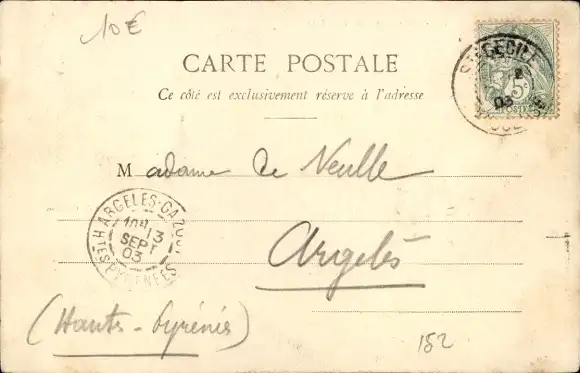 10€
CARTE POSTALE
Ce côté est exclusivement réservé à l'adresse
STE CECILE
2
03
5c
POSTES
Madame de Neulle
Argelès
ARGELES-GAZOST
13
SEPT
03
HTES PYRENEES
(Hautes-Pyrénées)
152